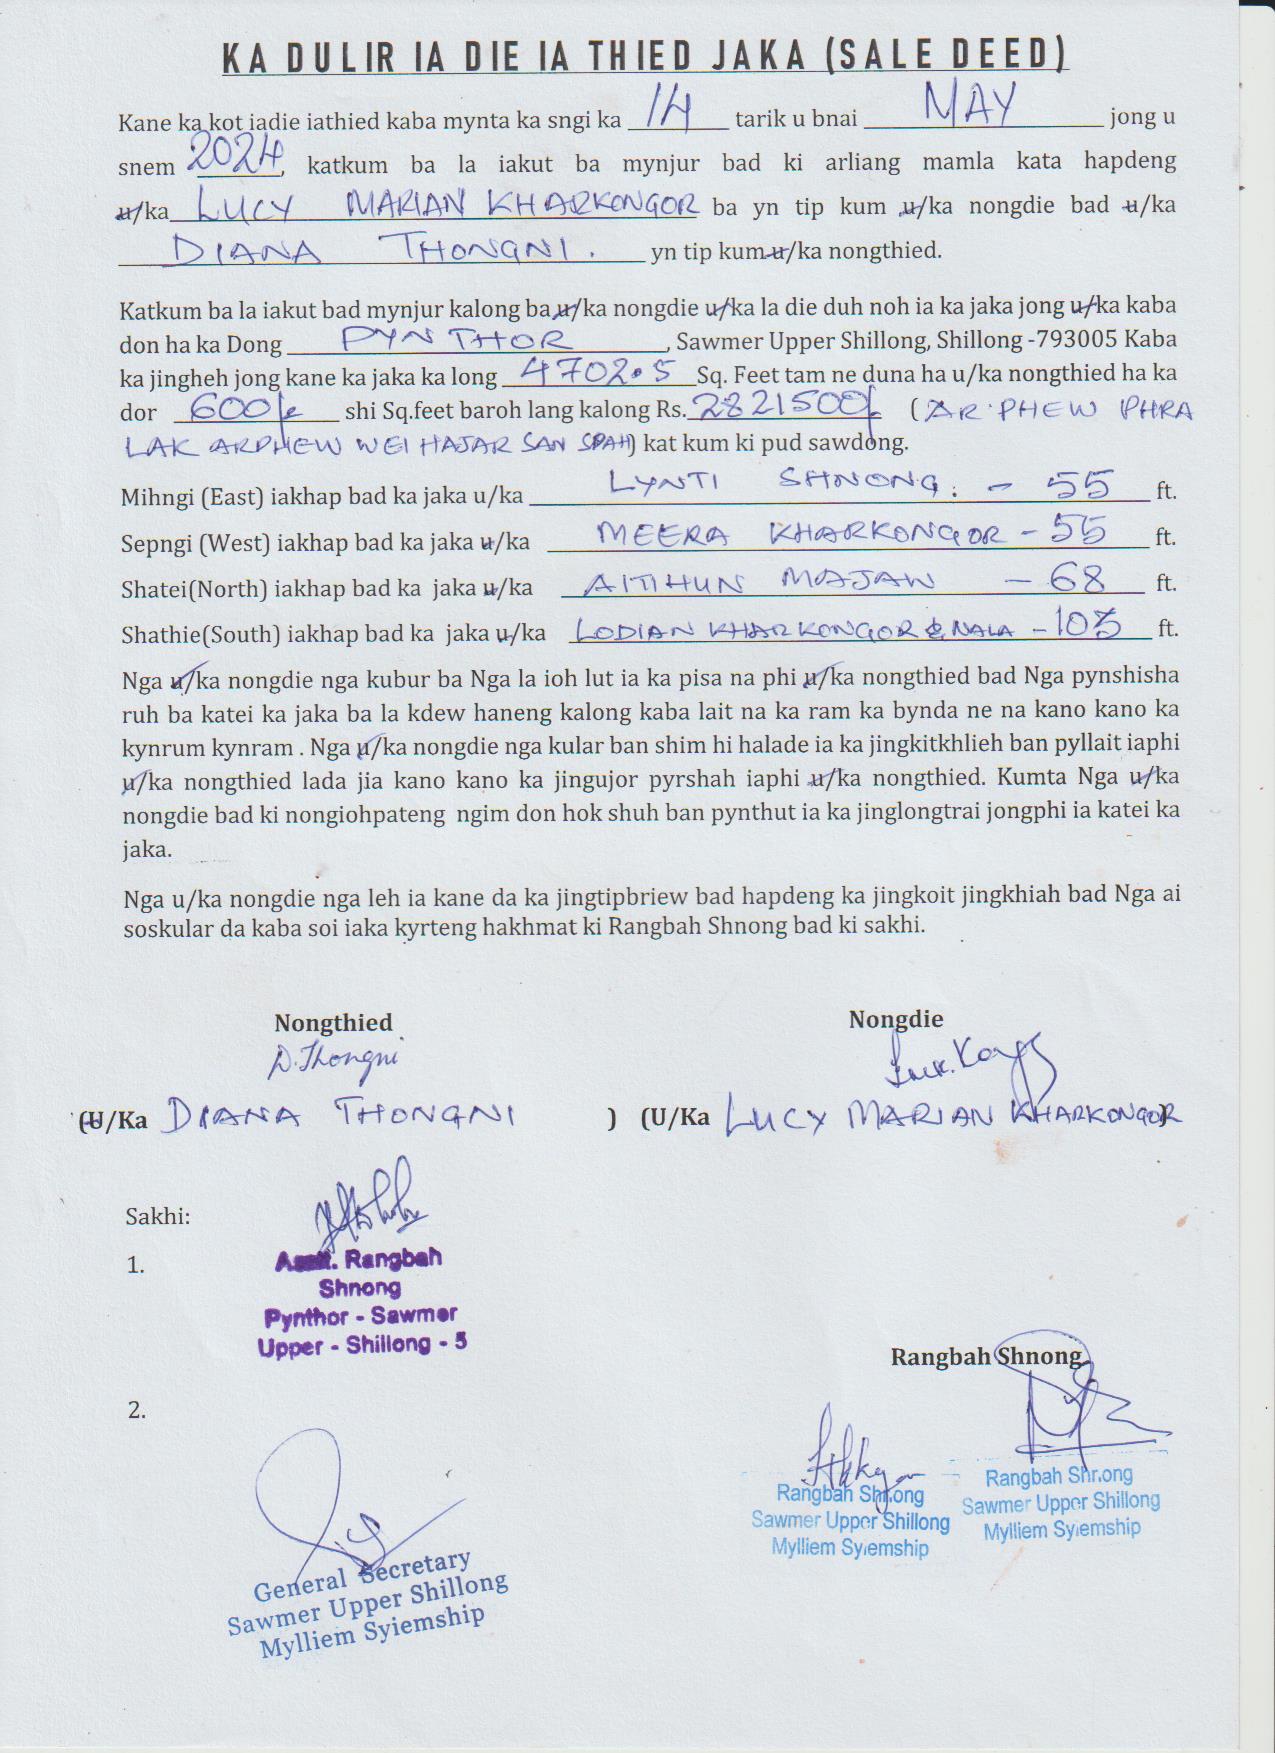 KA DULIR IA DIE IA THIED JAKA (SALE DEED)
Kane ka kot iadie iathied kaba mynta ka sngi ka 14 tarik u bnai MAY jong u
snem 2024, katkum ba la iakut ba mynjur bad ki arliang mamla kata hapdeng
u/ka LUCY MARIAN KHARKONGOR ba yn tip kum u/ka nongdie bad u/ka
DIANA THONGNI. yn tip kum u/ka nongthied.
Katkum ba la iakut bad mynjur kalong ba u/ka nongdie u/ka la die duh noh ia ka jaka jong u/ka kaba
don ha ka Dong PYNTHOR, Sawmer Upper Shillong, Shillong -793005 Kaba
ka jingheh jong kane ka jaka ka long 4702.5 Sq. Feet tam ne duna ha u/ka nongthied ha ka
dor 600/- shi Sq.feet baroh lang kalong Rs. 2821500/- (AR PHEW PHRA
LAK ARPHEW WEI HAJAR SAN SPAH) kat kum ki pud sawdong.
Mihngi (East) iakhap bad ka jaka u/ka LYNTI SHNONG. - 55 ft.
Sepngi (West) iakhap bad ka jaka u/ka MEERA KHARKONGOR - 55 ft.
Shatei(North) iakhap bad ka jaka u/ka AITIHUN MAJAW - 68 ft.
Shathie(South) iakhap bad ka jaka u/ka LODIAN KHARKONGOR & NALA - 103 ft.
Nga u/ka nongdie nga kubur ba Nga la ioh lut ia ka pisa na phi u/ka nongthied bad Nga pynshisha
ruh ba katei ka jaka ba la kdew haneng kalong kaba lait na ka ram ka bynda ne na kano kano ka
kynrum kynram . Nga u/ka nongdie nga kular ban shim hi halade ia ka jingkitkhlieh ban pyllait iaphi
u/ka nongthied lada jia kano kano ka jingujor pyrshah iaphi u/ka nongthied. Kumta Nga u/ka
nongdie bad ki nongiohpateng ngim don hok shuh ban pynthut ia ka jinglongtrai jongphi ia katei ka
jaka.
Nga u/ka nongdie nga leh ia kane da ka jingtipbriew bad hapdeng ka jingkoit jingkhiah bad Nga ai
soskular da kaba soi iaka kyrteng hakhmat ki Rangbah Shnong bad ki sakhi.
Nongthied Nongdie
D. Thongni
(U/Ka DIANA THONGNI ) (U/Ka LUCY MARIAN KHARKONGOR )
Sakhi:
1.
Asstt. Rangbah
Shnong
Pynthor - Sawmer
Upper - Shillong - 5
Rangbah Shnong
2.
General Secretary
Sawmer Upper Shillong
Mylliem Syiemship
Rangbah Shnong
Sawmer Upper Shillong
Mylliem Syiemship
Rangbah Shnong
Sawmer Upper Shillong
Mylliem Syiemship